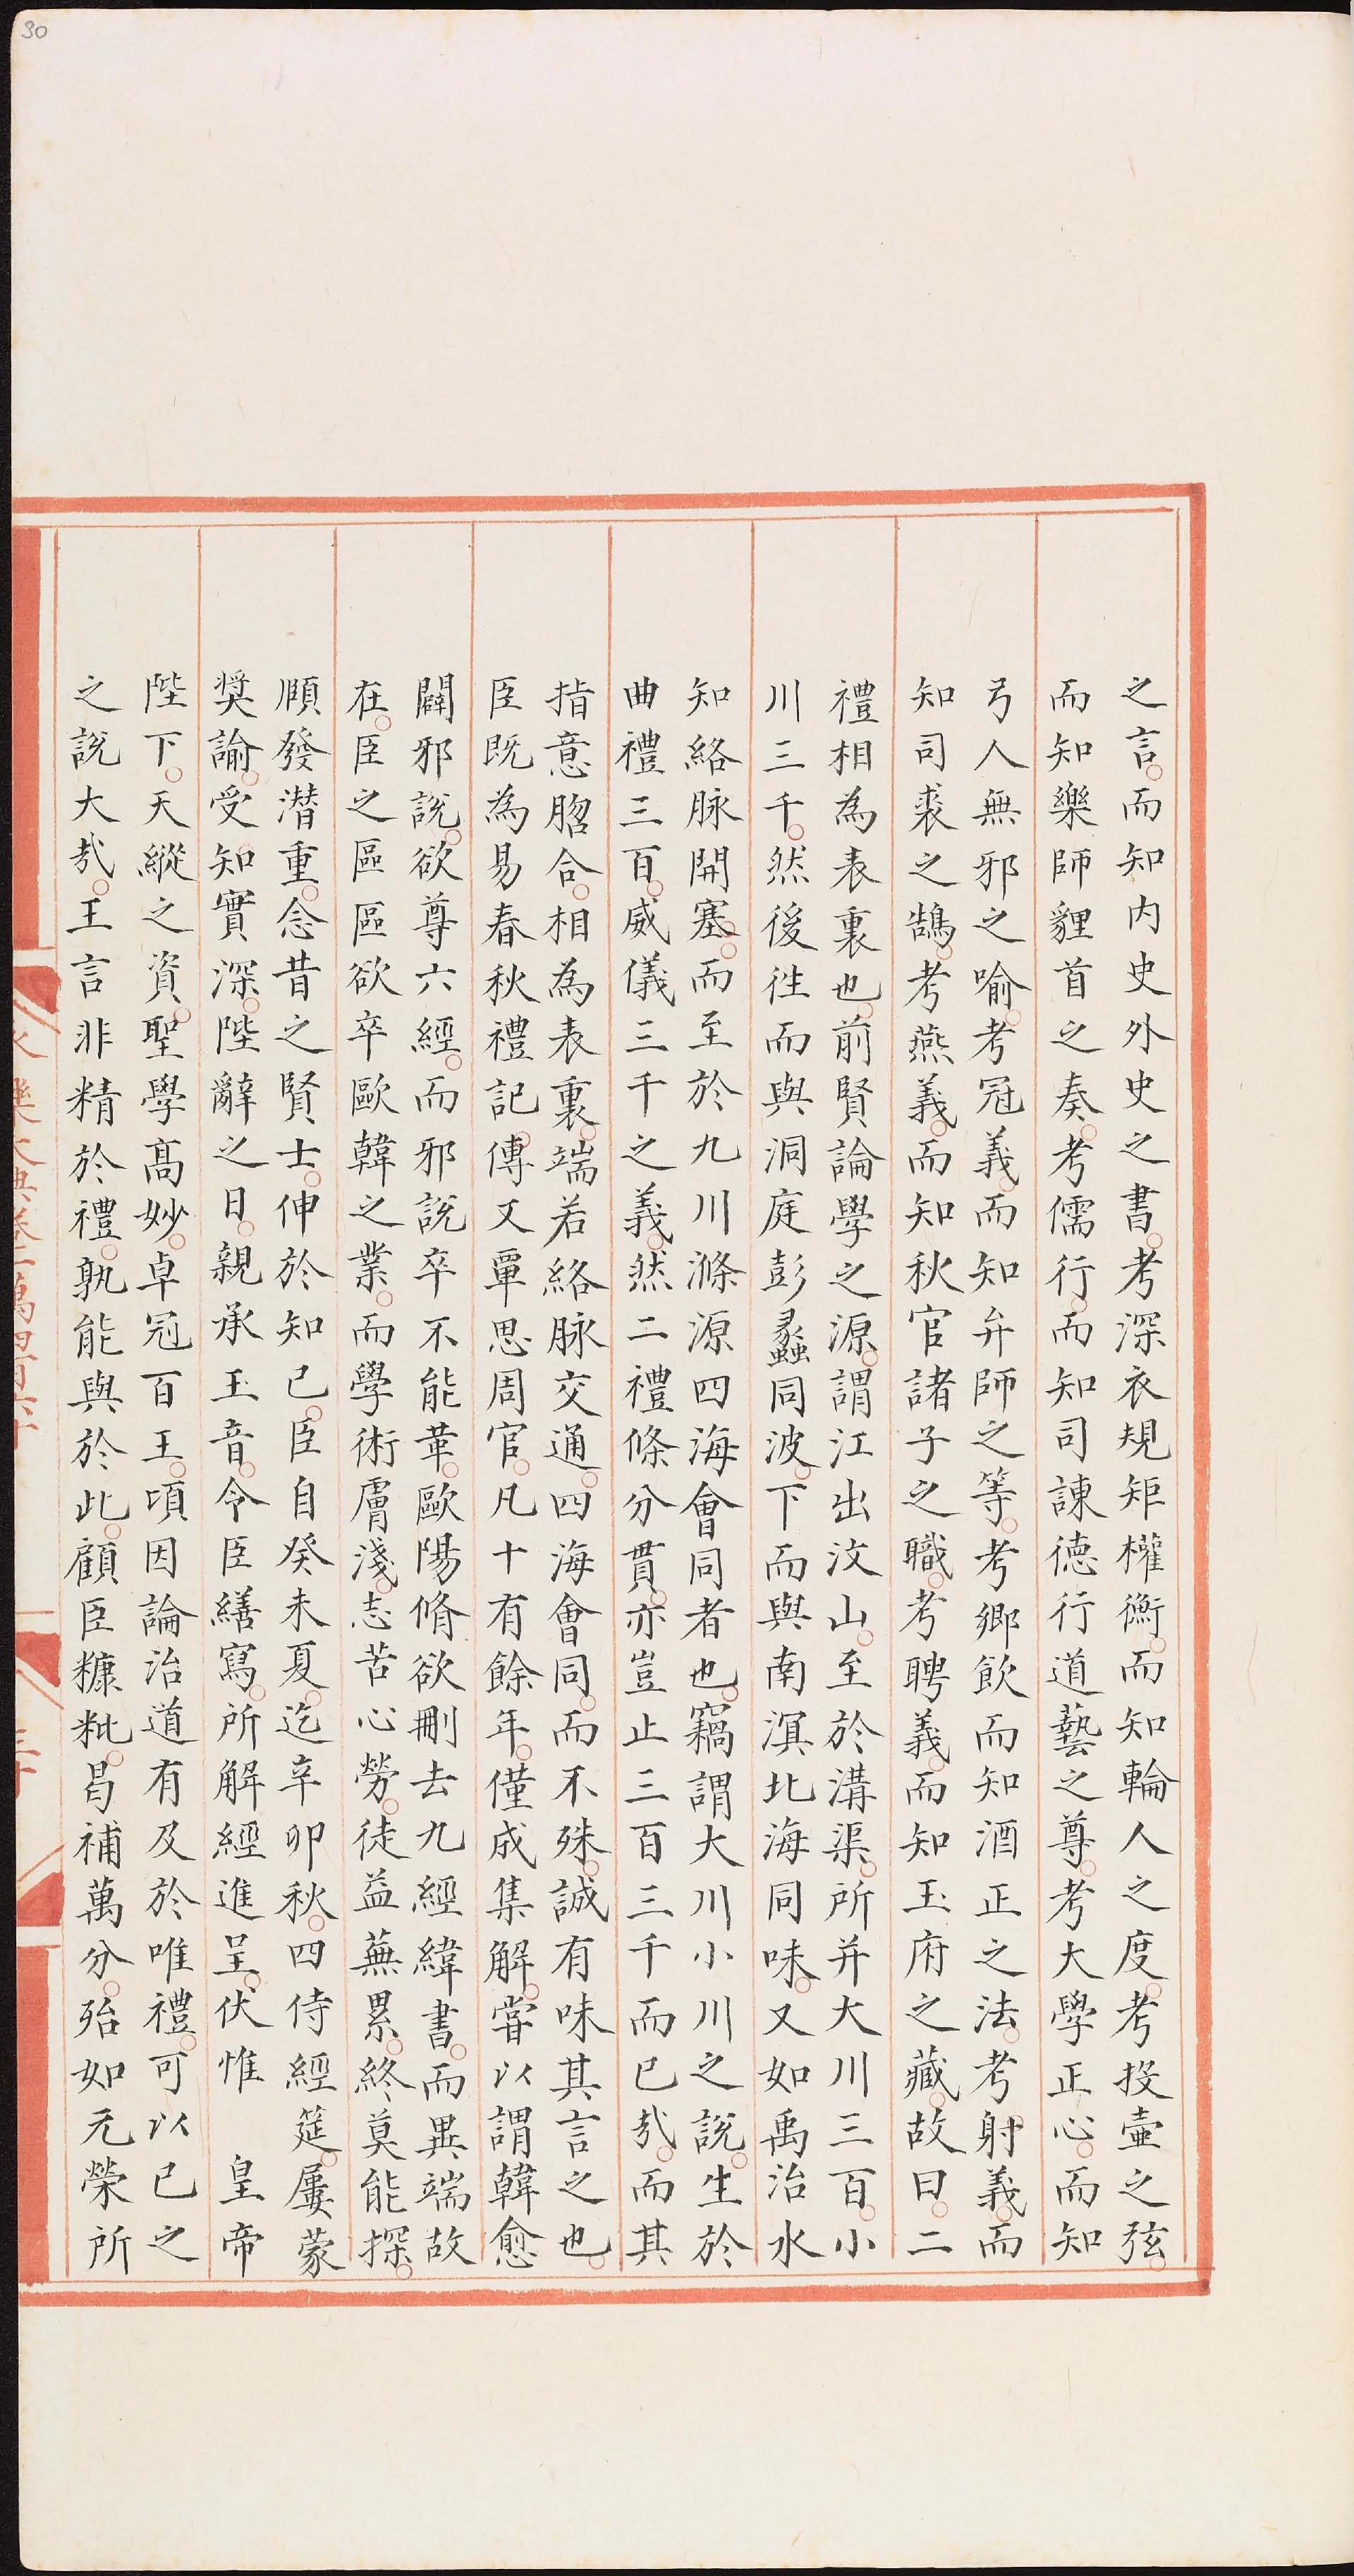 之言而知内史外史之書考深衣規矩權衡而知輪人之度考投壺之弦
而知樂師貍首之奏考儒行而知司諫德行道藝之尊考大學正心而知
弓人無邪之喻考冠義而知弁師之等考鄉飲而知酒正之法考射義而
知司裘之鵠考燕義而知秋官諸子之職考聘義而知玉府之藏故曰二
禮相為表裏也前賢論學之源謂江出汶山至於溝渠所并大川三百小
川三千然後徃而與洞庭彭蠡同波下而與南溟北海同味又如禹治水
知絡脉開塞而至於九川滌源四海會同者也竊謂大川小川之說生於
曲禮三百威儀三千之義然二禮條分貫亦豈止三百三千而已㢤而其
指意脗合相為表裏端若絡脉交通四海會同而不殊誠有味其言之也
臣既為易春秋禮記傳又覃思周官凡十有餘年僅成集解甞以謂韓愈
闢邪說欲尊六經而邪說卒不能革歐陽脩欲刪去九經緯書而異端故
在臣之區區欲卒歐韓之業而學術膚淺志苦心勞徒益蕪累終莫能探
頥發潛重念昔之賢士伸於知己臣自癸未夏迄辛卯秋四侍經筵屢蒙
奬諭受知實深陛辭之日親承玉音令臣繕寫所解經進呈伏惟 皇帝
陛下天縱之資聖學髙妙卓冠百王頃因論治道有及於唯禮可以已之
之說大㢤王言非精於禮孰能與於此顧臣糠粃曷補萬分殆如元榮所
永樂大典卷二萬四百七十
三十
30